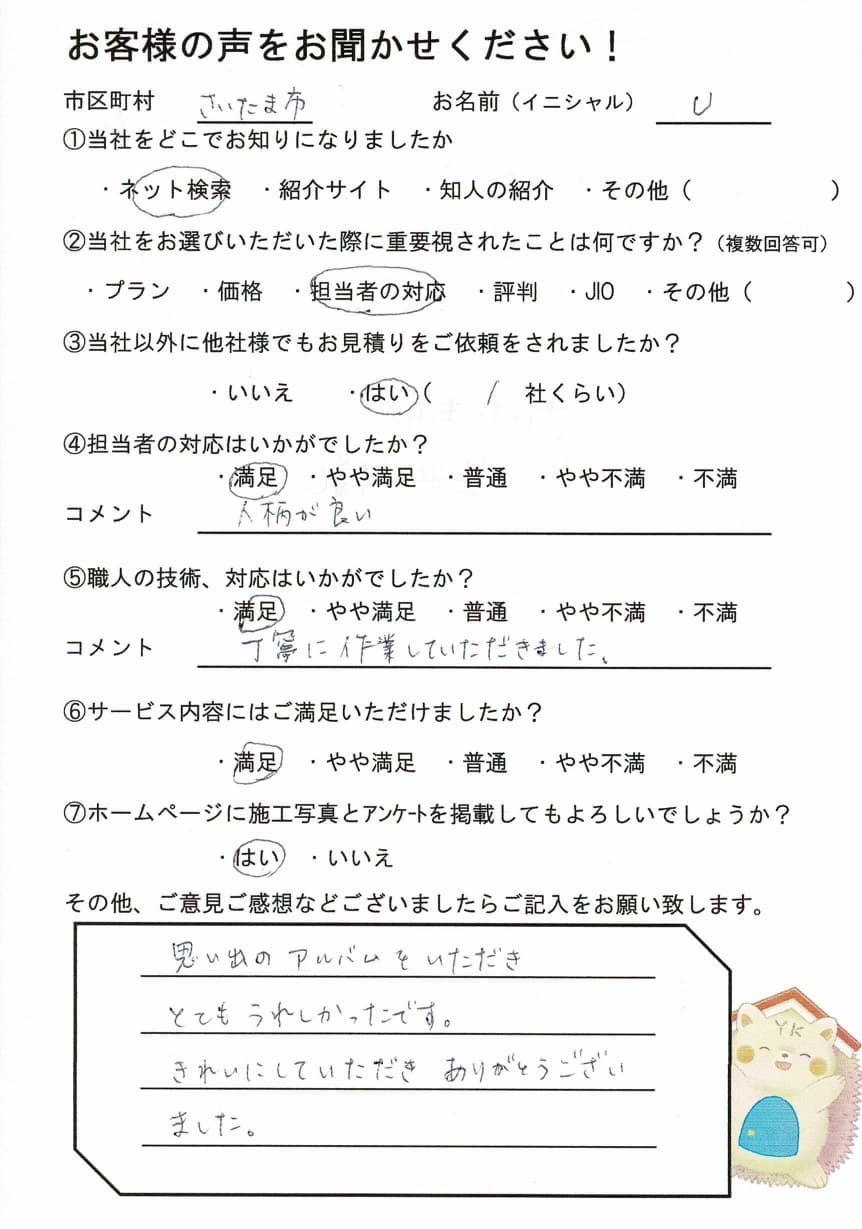 お客様の声をお聞かせください！
市区町村 さいたま市 お名前（イニシャル） U
①当社をどこでお知りになりましたか
・ネット検索 ・紹介サイト ・知人の紹介 ・その他（ ）
②当社をお選びいただいた際に重要視されたことは何ですか？（複数回答可）
・プラン ・価格 ・担当者の対応 ・評判 ・JIO ・その他（ ）
③当社以外に他社様でもお見積りをご依頼をされましたか？
・いいえ ・はい（ 1 社くらい）
④担当者の対応はいかがでしたか？
・満足 ・やや満足 ・普通 ・やや不満 ・不満
コメント 人柄が良い
⑤職人の技術、対応はいかがでしたか？
・満足 ・やや満足 ・普通 ・やや不満 ・不満
コメント 丁寧に作業していただきました。
⑥サービス内容にはご満足いただけましたか？
・満足 ・やや満足 ・普通 ・やや不満 ・不満
⑦ホームページに施工写真とｱﾝｹｰﾄを掲載してもよろしいでしょうか？
・はい ・いいえ
その他、ご意見ご感想などございましたらご記入をお願い致します。
思い出のアルバムをいただき
とてもうれしかったです。
きれいにしていただき ありがとうござい
ました。
YK